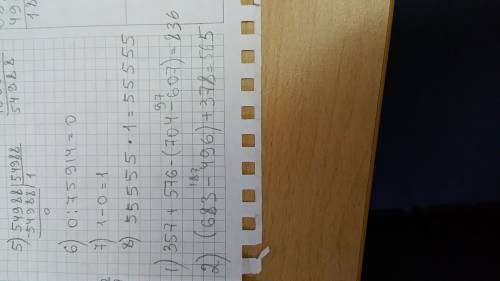 54988
5) 54988 | 54988
54988 | 1
0
6) 0:75914=0
7) 1-0=1
8) 55555·1=55555
97
1) 357+576-(704-607)=836
187
2) (683-496)+378=565